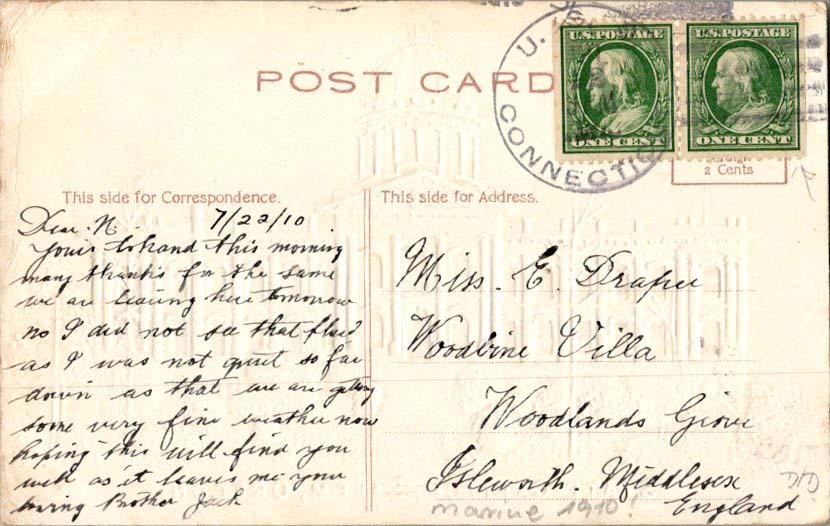 POST CARD
U. S.
CONNECTIC
U.S. POSTAGE
ONE CENT
U.S. POSTAGE
ONE CENT
2 Cents
This side for Correspondence.
This side for Address.
Dear N. 7/22/10
Yours to hand this morning
many thanks for the same
we are leaving here tomorrow
no I did not see that
as I was not quit so far
down as that we are getting
some very fine weather now
hoping this will find you
well as it leaves me your
loving Brother Jack
Miss. E. Draper
Woodbine Villa
Woodlands Grove
Isleworth. Middlesex
England
marine 1910!